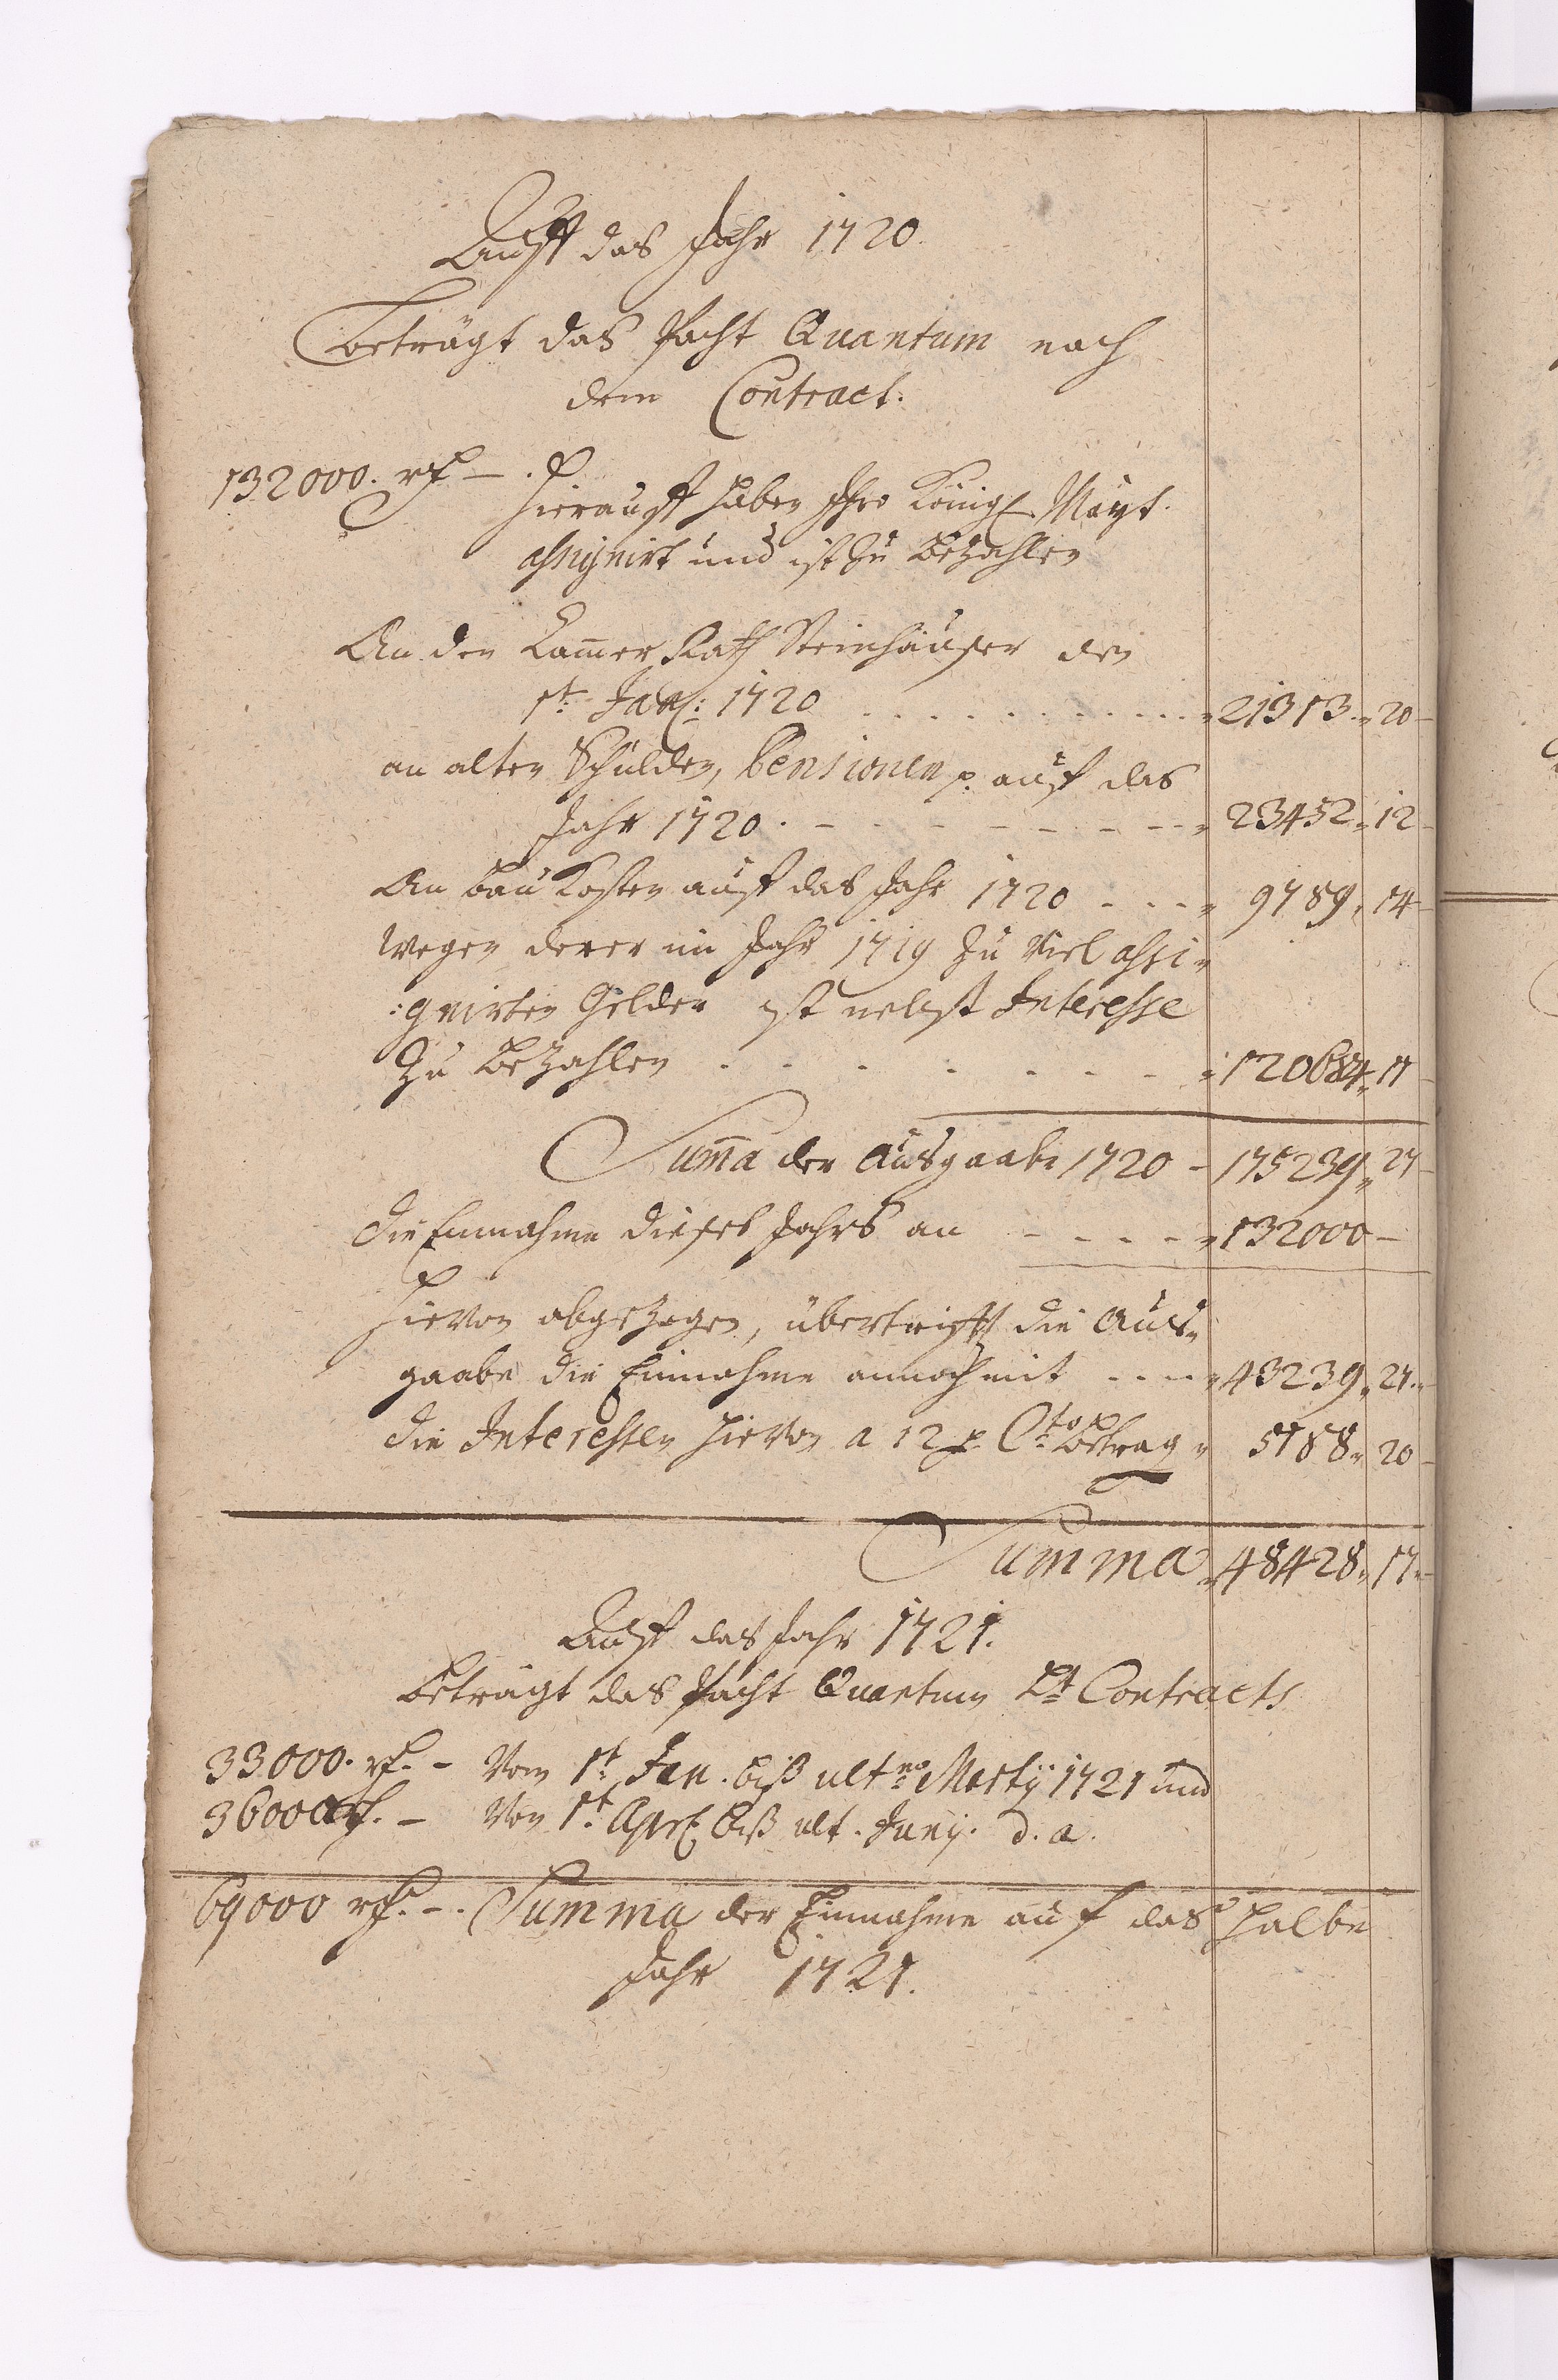 Auff das Jahr 1720.
Beträgt das Pacht Quantum nach
dem Contract.
132000. rf –. Hierauff haben Ihro Königl. Mayt.
assignirt und ist zu bezahlen
An den Cammer Rath Steinhäuser den
1t. Jan: 1720 . . . . . . . . . . . 21313. 20
an alten Schulden, Pensionen p. auf das
Jahr 1720. – – – – – – – – 23452. 12
An Bau Kosten auf das Jahr 1720 - - - 9789. 14
Wegen derer im Jahr 1719 zu viel assi-
:gnirten Gelder ist nebst Interesse
zu bezahlen . . . . . . . . 120684. 11
Suma der Ausgaabe 1720 - 175239. 27
Die Einnahme dieses Jahrs an - - - - - 132000 –
Hievon abgezogen, übertrifft die Aus-
gaabe die Einnahme annoch mit - - - - 43239. 27.
Die Interessen hievon a 12 p. Cto Betrag 5188. 20
Summa 48428. 17.
Auf das Jahr 1721.
Beträgt das Pacht Quantum Lt. Contracts
33000. rf. – Vom 1t. Jan. biß ultno. Martij 1721 und
36000 rf. – Von 1t. Apr. biß ult. Junij. d. a.
69000 rf. –. Summa der Einnahme auf das halbe
Jahr 1721.